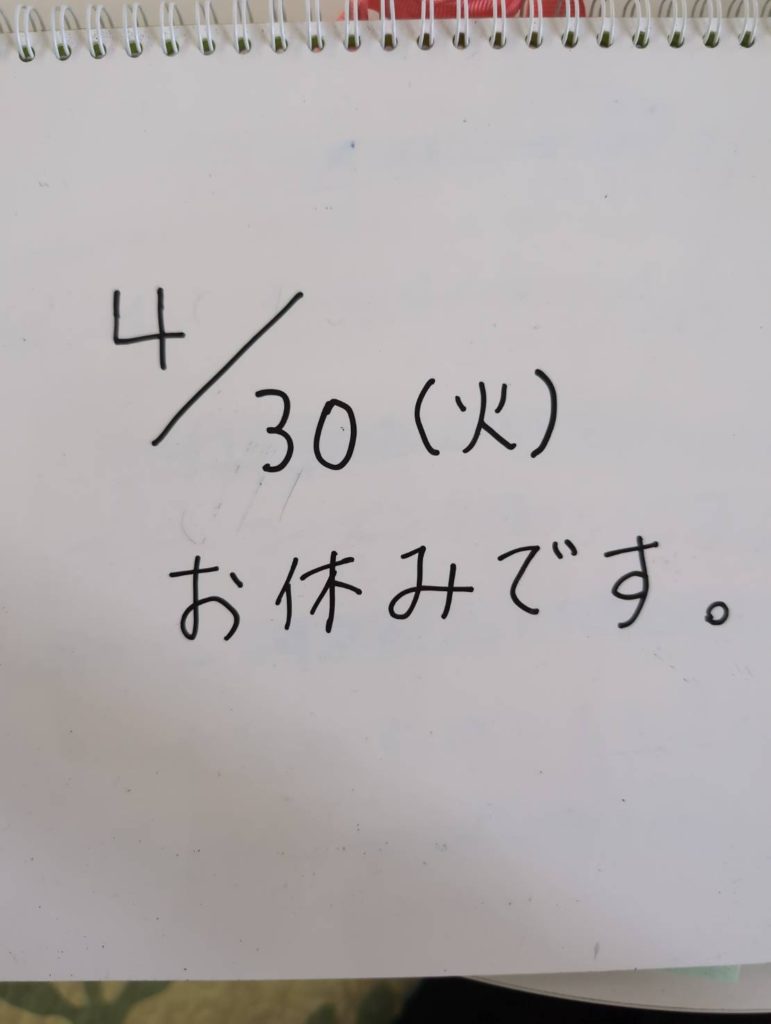 4/30（火）
お休みです。